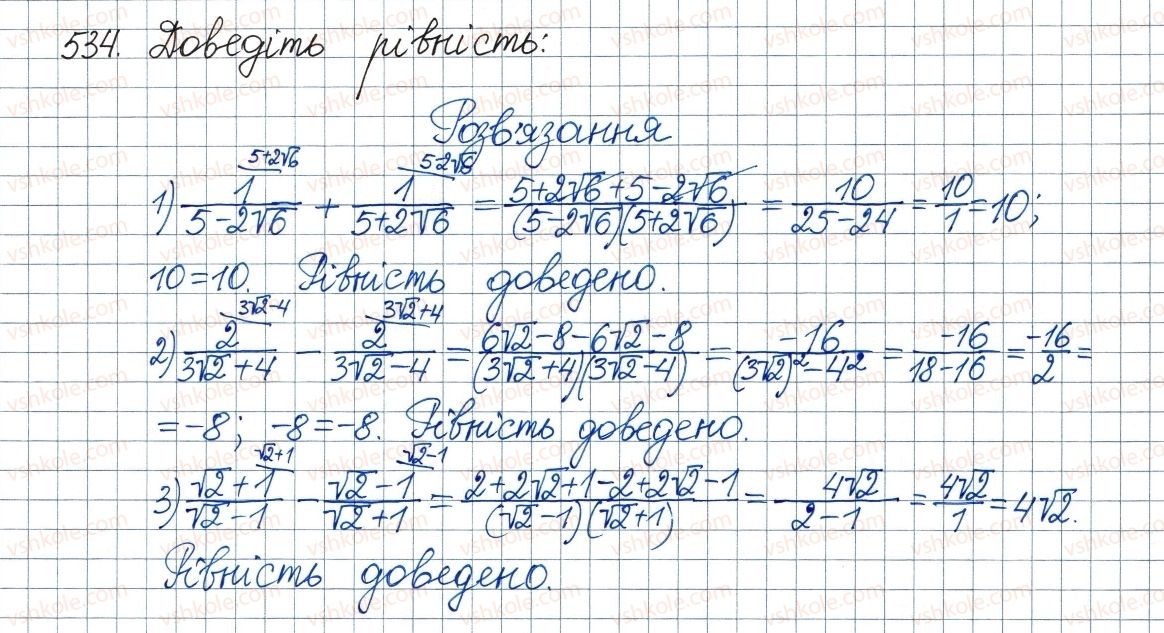 534. Доведіть рівність:
Розв'язання
1) 1/(5-2√6) (5+2√6) + 1/(5+2√6) (5-2√6) = (5+2√6+5-2√6)/((5-2√6)(5+2√6)) = 10/(25-24) = 10/1 = 10;
10=10. Рівність доведено.
2) 2/(3√2+4) (3√2-4) - 2/(3√2-4) (3√2+4) = (6√2-8-6√2-8)/((3√2+4)(3√2-4)) = -16/((3√2)²-4²) = -16/(18-16) = -16/2 =
= -8; -8=-8. Рівність доведено.
3) (√2+1)/(√2-1) (√2+1) - (√2-1)/(√2+1) (√2-1) = (2+2√2+1-2+2√2-1)/((√2-1)(√2+1)) = 4√2/(2-1) = 4√2/1 = 4√2.
Рівність доведено.
vshkole.com